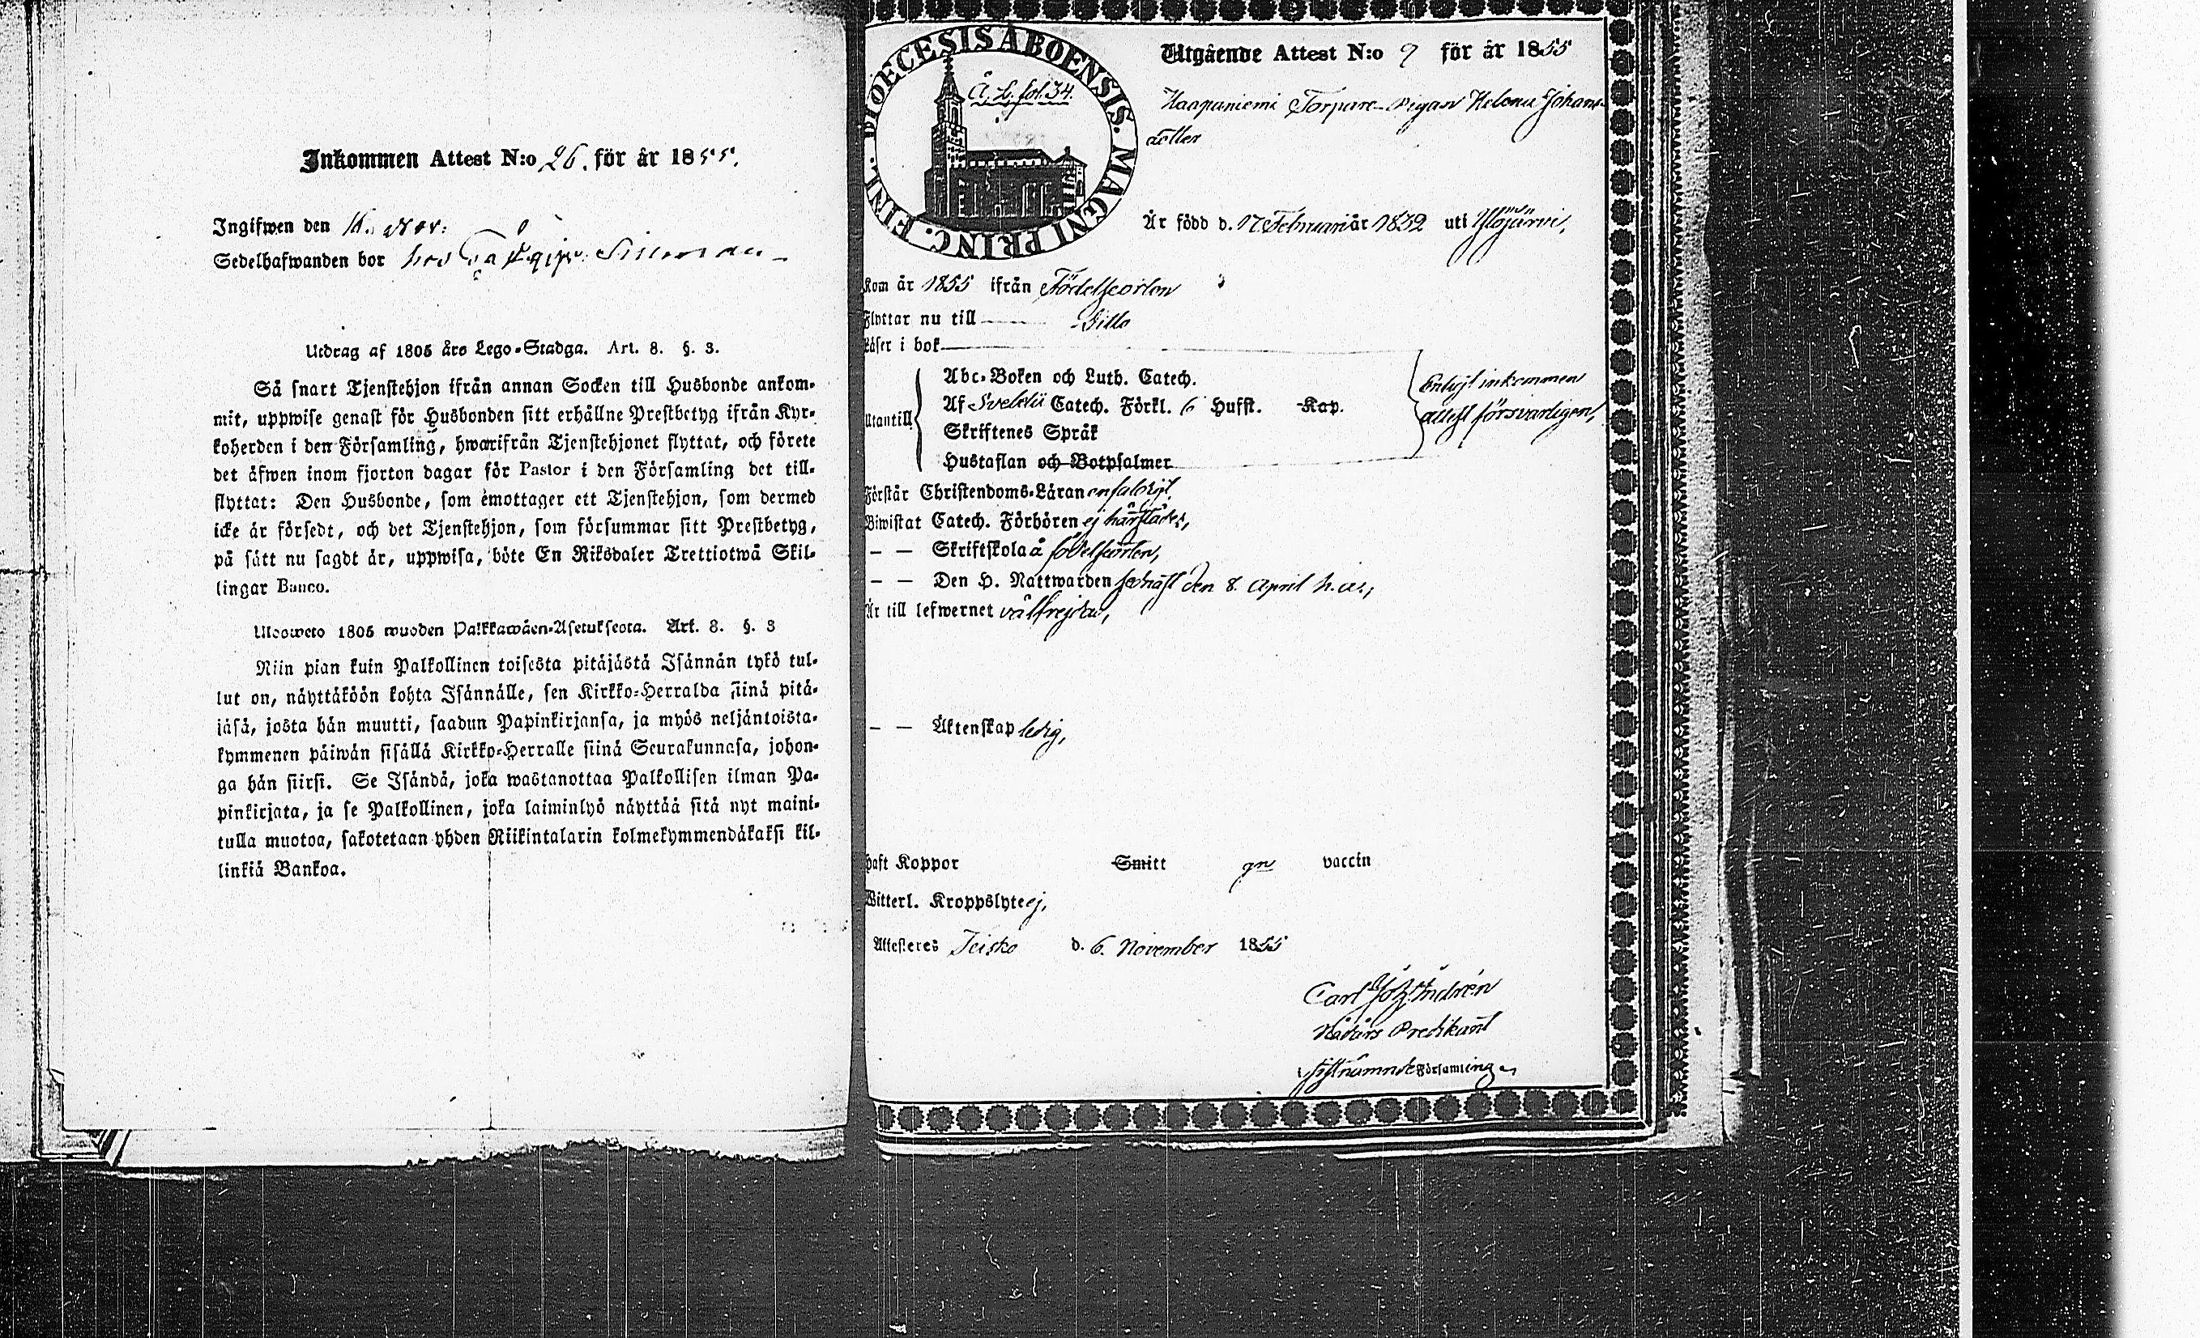 Inkommen Attest N:o 26. för år 1855.
Ingifwen den
Sedelhafwanden bor hos
Utdrag af 1805 års Lego-Stadga. Art. 8. §. 3.
Så snart Tjenstehjon ifrån annan Socken till Husbonde ankom-
mit, uppwise genast för Husbonden sitt erhållne Prestbetyg ifrån Kyr-
koherden i den Församling, hwarifrån Tjenstehjonet flyttat, och förete
det äfwen inom fjorton dagar för Pastor i den Församling det till-
flyttat: Den Husbonde, som emottager ett Tjenstehjon, som dermed
icke är försedt, och det Tjenstehjon, som försummar sitt Prestbetyg,
på sätt nu sagdt är, uppwisa, böte En Riksdaler Trettiotwå Skil-
lingar Banco.
Ulosweto 1805 wuoden Palkkawäen-Asetuksesta. Art. 8. §. 3
Niin pian kuin Palkollinen toisesta pitäjästä Isännän tykö tul-
lut on, näyttäköön kohta Isännälle, sen Kirkko-Herralda siinä pitä-
jäsä, josta hän muutti, saadun Papinkirjansa, ja myös neljäntoista-
kymmenen päiwän sisällä Kirkko-Herralle siinä Seurakunnasa, johon-
ga hän siirsi. Se Isändä, joka wastanottaa Palkollisen ilman Pa-
pinkirjata, ja se Palkollinen, joka laiminlyö näyttää sitä nyt maini-
tulla muotoa, sakotetaan yhden Riikintalarin kolmekymmendäkaksi kil-
linkiä Bankoa.
DIOECESIS ABOENSIS. MAGNI PRINC. FINL.
Å. L. fol. 34.
Utgående Attest N:o 9 för år 1855
Haapaniemi Torpare-Pigan Helena Johans-
dotter
Är född d. 17 Februari år 1832 uti Ylöjärvi,
Kom år 1855 ifrån Födelseorten
Flyttar nu till Ditto
Läser i bok
Utantill
Abc-Boken och Luth. Catech.
Af Svebelii Catech. Förkl. 6 Hufst. Kap.
Skriftenes Språk
Hustaflan och Botpsalmer
Enligt inkommen
attest försvarligen,
Förstår Christendoms-Läran enfaldigt,
Biwistat Catech. Förhören ej härstädes,
— — Skriftskola å födelseorten,
— — Den H. Nattwarden sednast den 8. April h. a.,
Är till lefwernet välfrejdad,
— — Äktenskap ledig,
haft Koppor Smitt gn vaccin
Witterl. Kroppslyte ej,
Attesteres Teisko d. 6. November 1855
Carl Andrén
Nådårs Predikant
i sistnämnde Församling